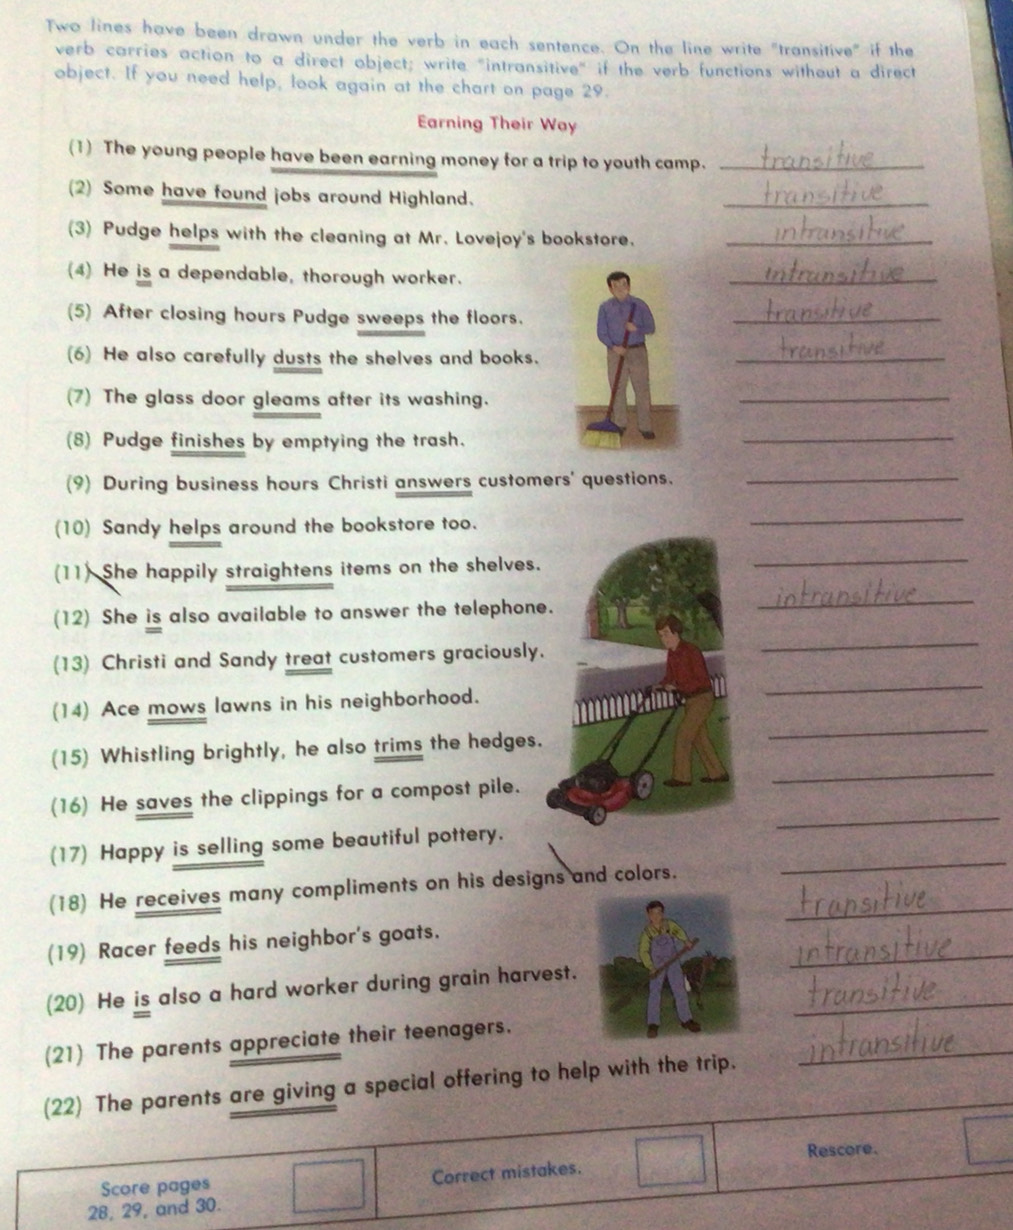 Two lines have been drawn under the verb in each sentence. On the line write "transitive" if the
verb carries action to a direct object; write "intransitive" if the verb functions without a direct
object. If you need help, look again at the chart on page 29.
Earning Their Way
(1) The young people have been earning money for a trip to youth camp. transitive
(2) Some have found jobs around Highland. transitive
(3) Pudge helps with the cleaning at Mr. Lovejoy's bookstore. intransitive
(4) He is a dependable, thorough worker. intransitive
(5) After closing hours Pudge sweeps the floors. transitive
(6) He also carefully dusts the shelves and books. transitive
(7) The glass door gleams after its washing.
(8) Pudge finishes by emptying the trash.
(9) During business hours Christi answers customers' questions.
(10) Sandy helps around the bookstore too.
(11) She happily straightens items on the shelves.
(12) She is also available to answer the telephone. intransitive
(13) Christi and Sandy treat customers graciously.
(14) Ace mows lawns in his neighborhood.
(15) Whistling brightly, he also trims the hedges.
(16) He saves the clippings for a compost pile.
(17) Happy is selling some beautiful pottery.
(18) He receives many compliments on his designs and colors.
(19) Racer feeds his neighbor's goats. transitive
(20) He is also a hard worker during grain harvest. intransitive
(21) The parents appreciate their teenagers. transitive
(22) The parents are giving a special offering to help with the trip. intransitive
Score pages
28, 29, and 30.
Correct mistakes.
Rescore.